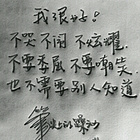 我很好！
不哭不闹不炫耀
不要委屈不要嘲笑
也不需要别人知道